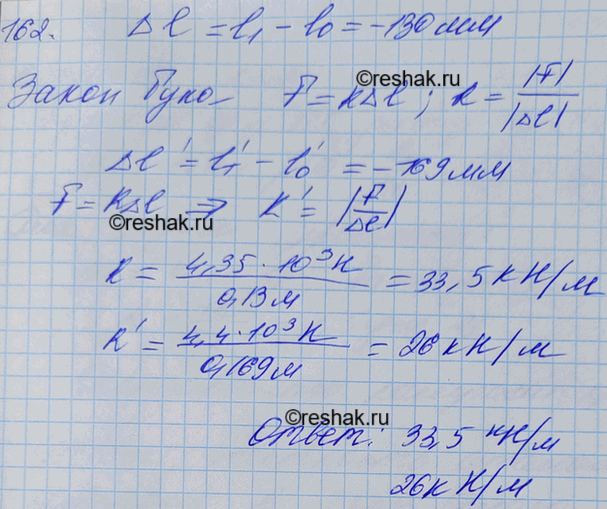 162. Δl = l₁ - l₀ = -130 мм
©reshak.ru
Закон Гука F = kΔl; k = |F| / |Δl|
Δl' = l₁' - l₀' = -169 мм
F = kΔl ⇒ k' = |F / Δl|
©reshak.ru
k = 4,35 · 10³ Н / 0,13 м = 33,5 кН/м
k' = 4,4 · 10³ Н / 0,169 м = 26 кН/м
©reshak.ru
Ответ: 33,5 кН/м
26 кН/м